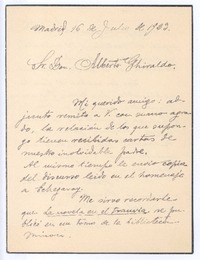 Madrid 16 de Julio de 1903.
Sr. Don Alberto Ghiraldo.
Mi querido amigo: ad-
junto remito a V. con sumo agra-
do, la relación de los que supon-
go tienen recibidas cartas de
nuestro inolvidable padre.
Al mismo tiempo le envío copia
del discurso leido en el homenaje
a Echegaray.
Me sirvo recordarle
que La novela en el tranvía se pu-
blicó en un tomo de la biblioteca